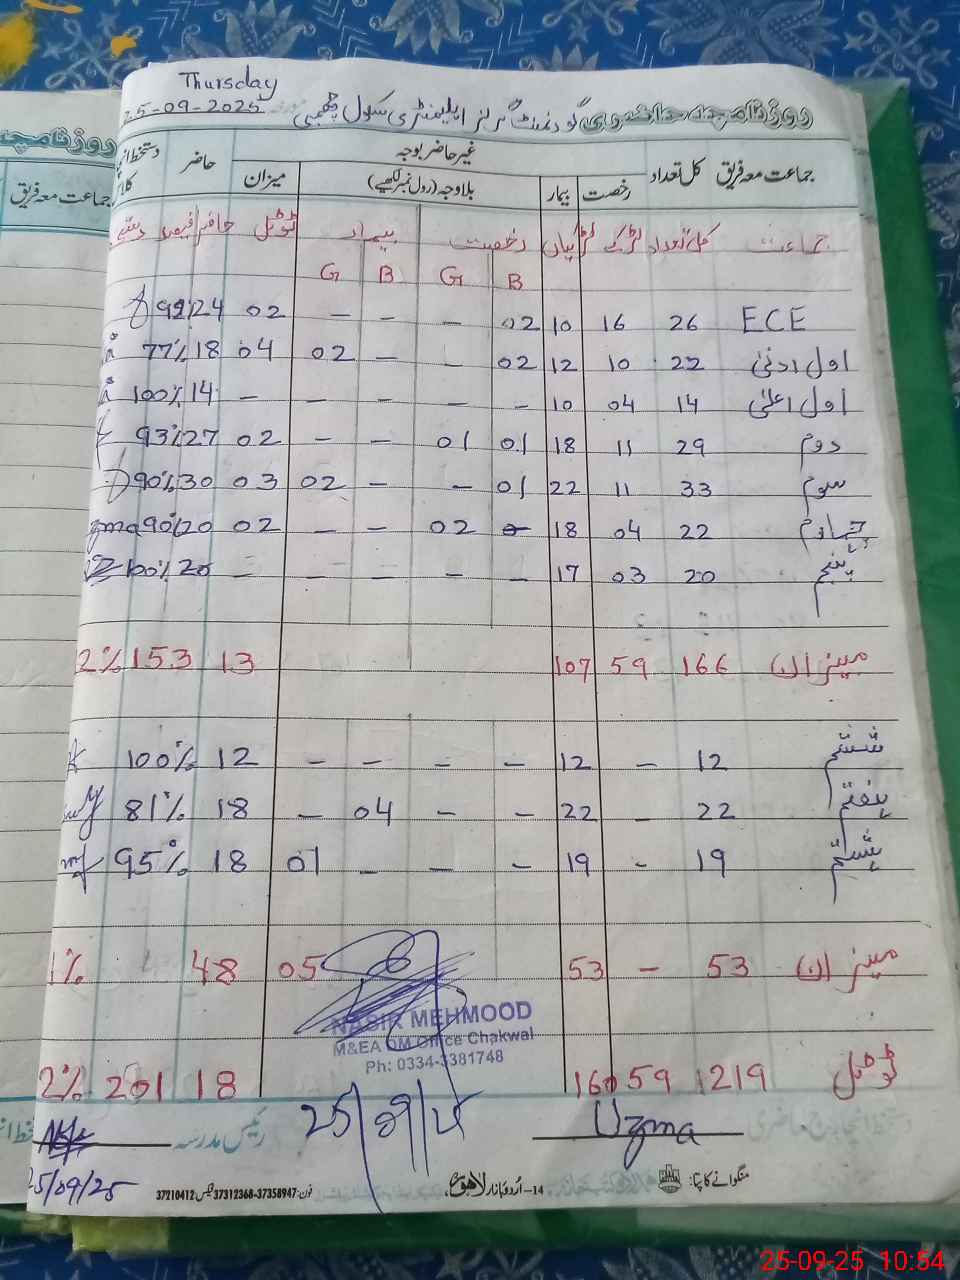 Thursday
25-09-2025 روزنامچہ حاضری گورنمنٹ گرلز ایلیمنٹری سکول چھمبی
جماعت معہ فریق کل تعداد رخصت بیمار غیر حاضر بوجہ بلاوجہ (رول نمبر لکھیے) میزان حاضر
جماعت کل تعداد لڑکے لڑکیاں رخصت بیمار ٹوٹل حاضر فیصد
B G B G
ECE 26 16 10 02 - - - 02 24 92
اول ادنیٰ 22 10 12 02 - 02 04 18 77%
اول اعلیٰ 14 04 10 - - - - - 14 100%
دوم 29 11 18 01 01 - - 02 27 93%
سوم 33 11 22 01 - - 02 03 30 90%
چہارم 22 04 18 02 - - 02 20 90%
پنجم 20 03 17 - - - - - 20 100%
میزان 166 59 107 13 153 2%
ششم 12 - 12 - - - - 12 100%
ہفتم 22 - 22 - - 04 - 18 81%
ہشتم 19 - 19 - - - 01 18 95%
میزان 53 - 53 05 48 1%
NASIR MEHMOOD
M&EA DM Office Chakwal
Ph: 0334-3381748
ٹوٹل 1219 59 160 18 201 2%
Uzma 25/09/25 رئیس مدرسہ
25/09/25
منگوانے کا پتا: 14-اُردو بازار لاہور، فون: 37358947-37312368 فیکس 37210412
جماعت معہ فریق
25-09-25 10:54